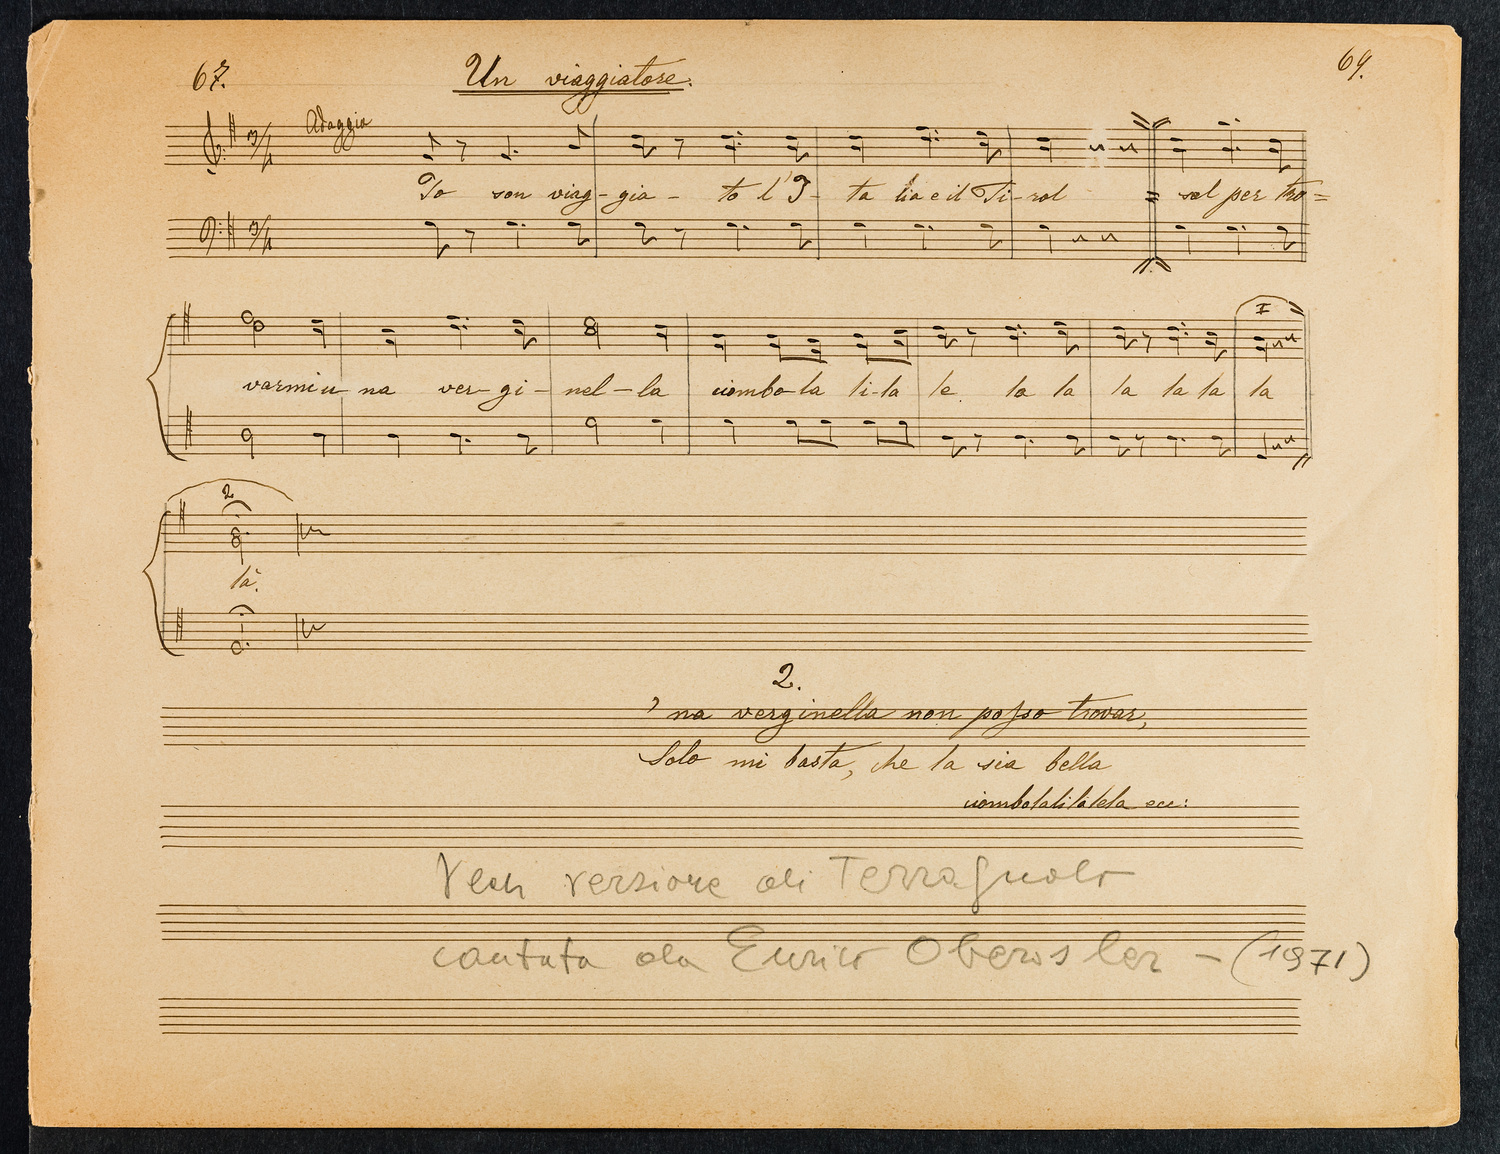 67. Un viaggiatore. 69.
Adaggio
3/4
Io son viag-gia-to l'I-ta lia e il Ti-rol sol per tro=
3/4
I
varmi u na ver-gi-nel-la ciombo-la li-la le la la la la la la
2
la.
2.
'na verginella non posso trovar,
Solo mi basta, che la sia bella
ciombolalilalela ecc:
Vedi versione di Terragnolo
cantata da Enrico Oberosler - (1971)